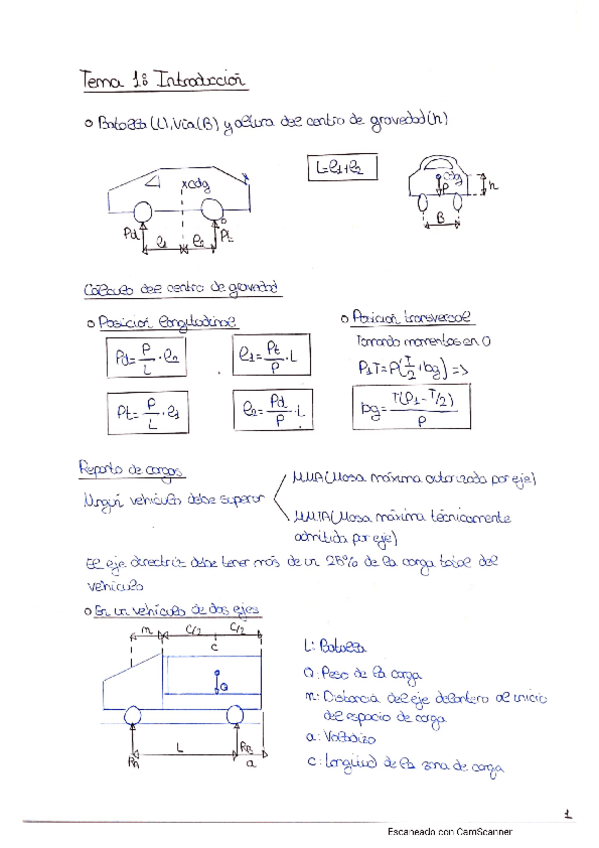 Tema 1: Introducción
o Batalla (L), Vía (B) y altura del centro de gravedad (h)
L=l1+l2
xcdg
cdg
P
h
Pd
l1
l2
Pt
B
Cálculo del centro de gravedad
o Posición longitudinal
Pd = P/L · l2
l1 = Pt/P · L
Pt = P/L · l1
l2 = Pd/P · L
o Posición transversal
Tomando momentos en O
P1T = P(T/2 + bg) =>
bg = T(P1 - T/2)/P
Reparto de cargas
Ningún vehículo debe superar
MMA (Masa máxima autorizada por eje)
MMTA (Masa máxima técnicamente
admitida por eje)
El eje directriz debe tener más de un 25% de la carga total del
vehículo
o En un vehículo de dos ejes
m
C/2
C/2
C
Q
L
RA
RB
a
L: Batalla
Q: Peso de la carga
m: Distancia del eje delantero al inicio
del espacio de carga
a: Voladizo
C: Longitud de la zona de carga
1
Escaneado con CamScanner